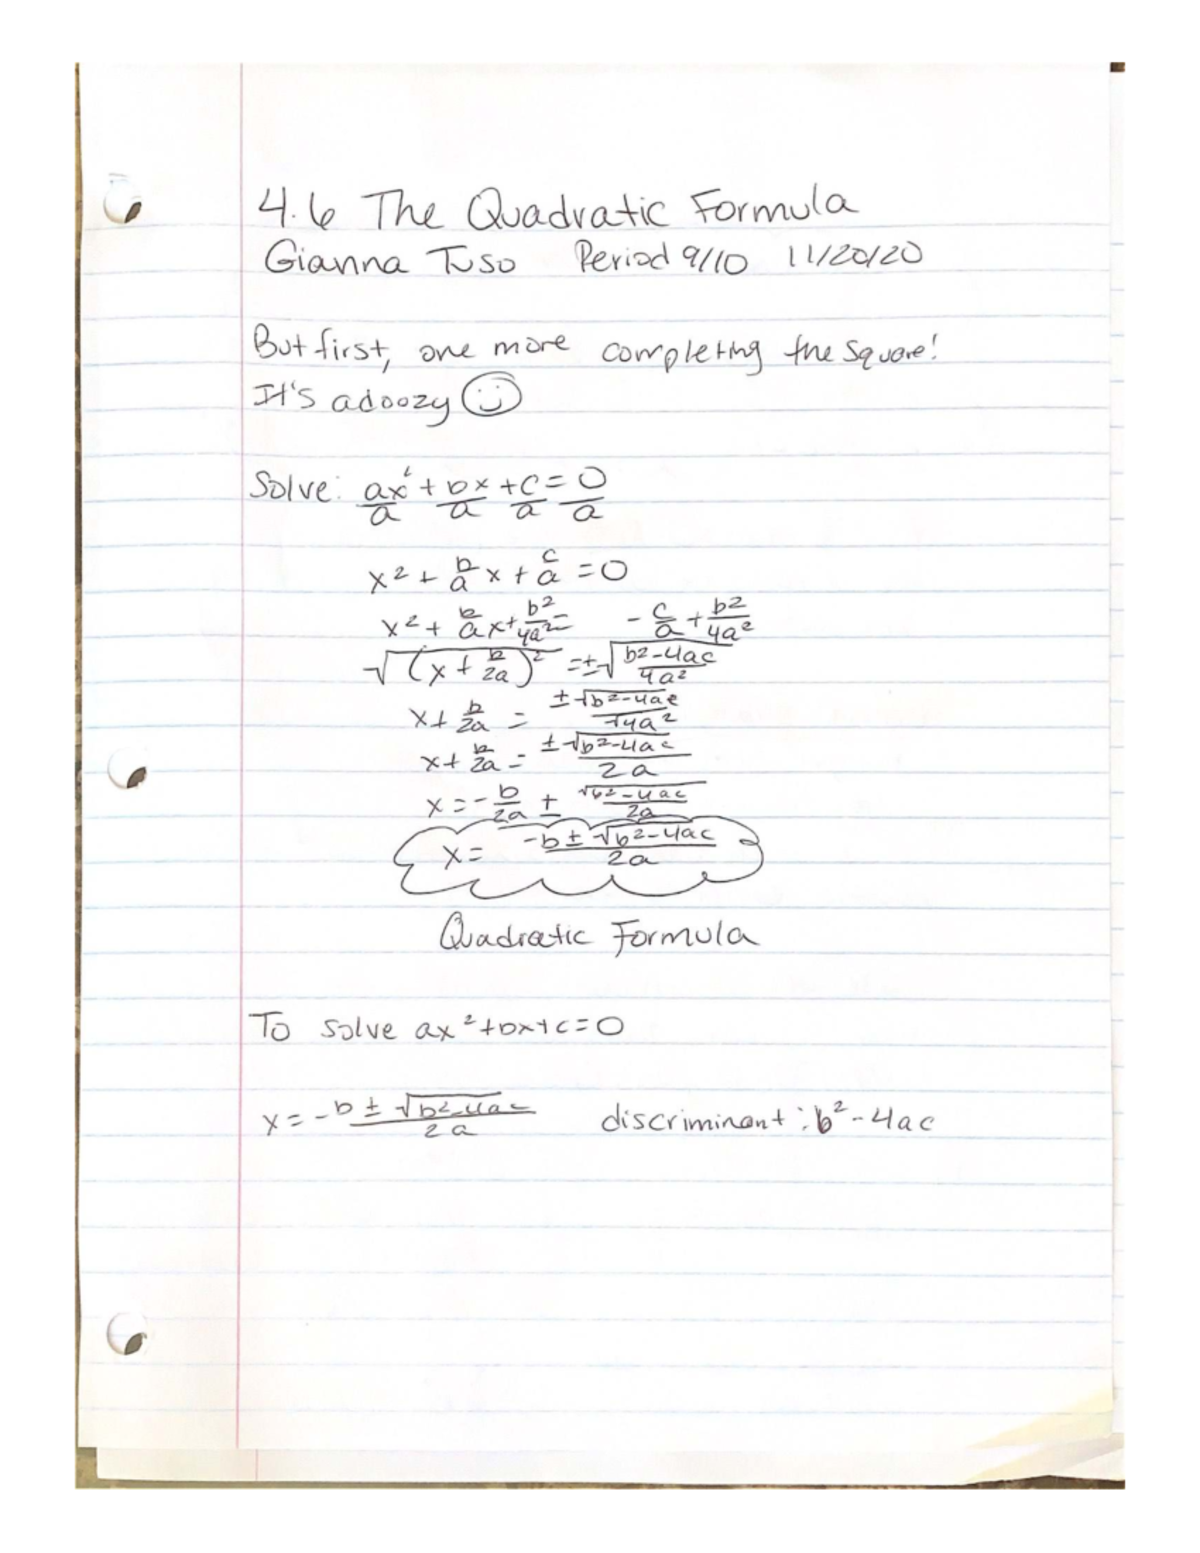 4.6 The Quadratic Formula
Gianna Tuso Period 9/10 11/20/20
But first, one more completing the square!
It's a doozy ☺
Solve: ax²/a + bx/a + c/a = 0/a
x² + b/a x + c/a = 0
x² + b/a x + b²/4a² = - c/a + b²/4a²
√(x + b/2a)² = ±√(b²-4ac/4a²)
x + b/2a = ±√b²-4ac/√4a²
x + b/2a = ±√b²-4ac/2a
x = - b/2a ± √b²-4ac/2a
x = -b ± √b²-4ac/2a
Quadratic Formula
To solve ax²+bx+c=0
x = -b ± √b²-4ac/2a discriminant: b²-4ac